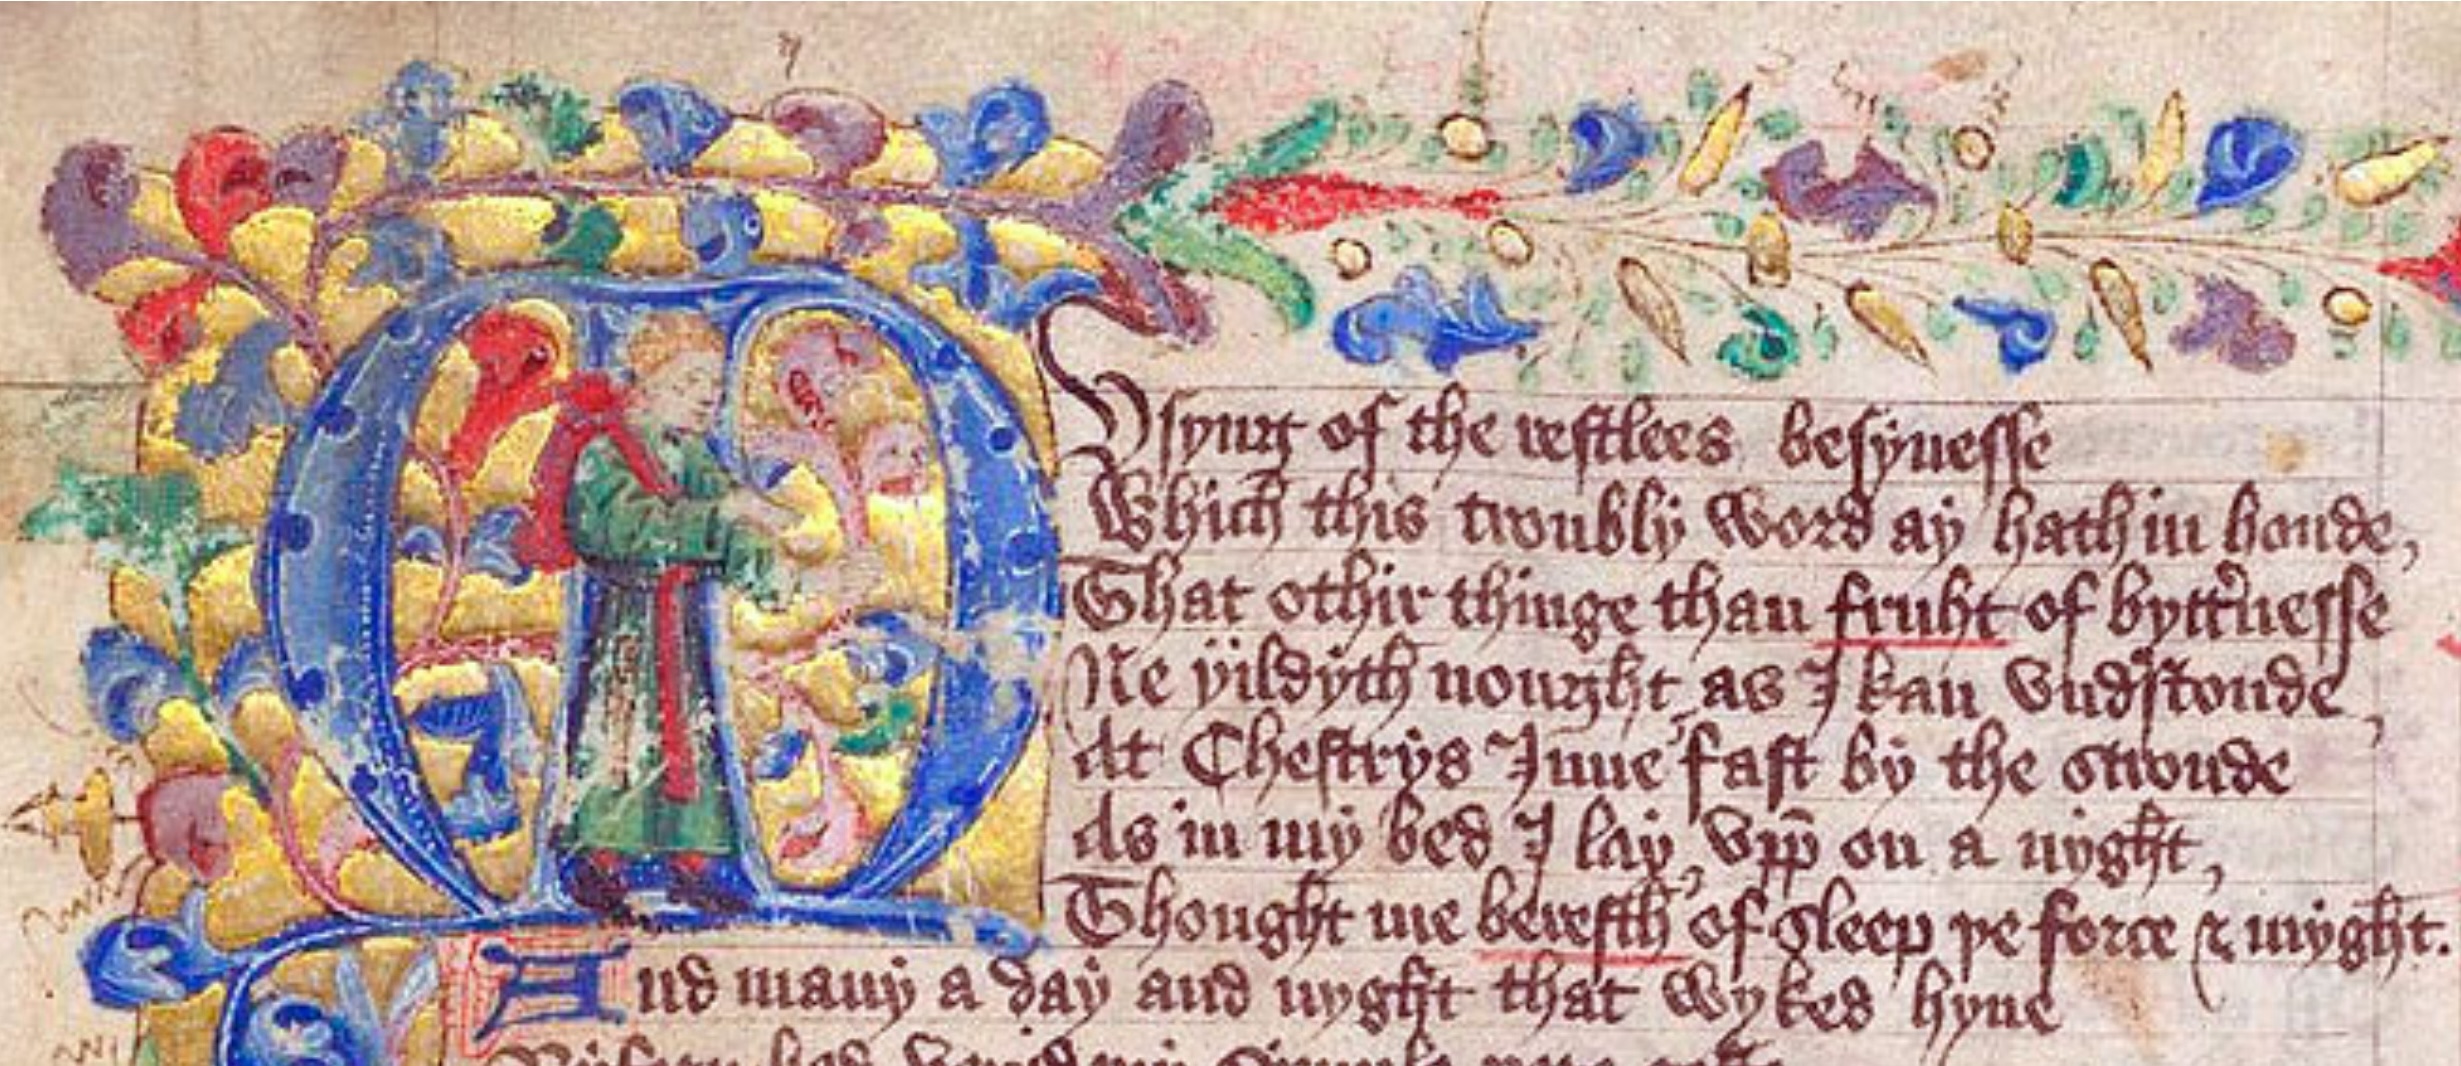 MUsyng of the restlees besynesse
Which this troubly world ay hath in honde,
That othir thinge than fruht of byttirnesse
Ne yildyth nought as I kan vndstonde
At Chestrys Inne fast by the stronde
As in my bed I lay, vpp on a nyght,
Thought me berefth of sleep þe force & myght.
And many a day and nyght that wyked hyne